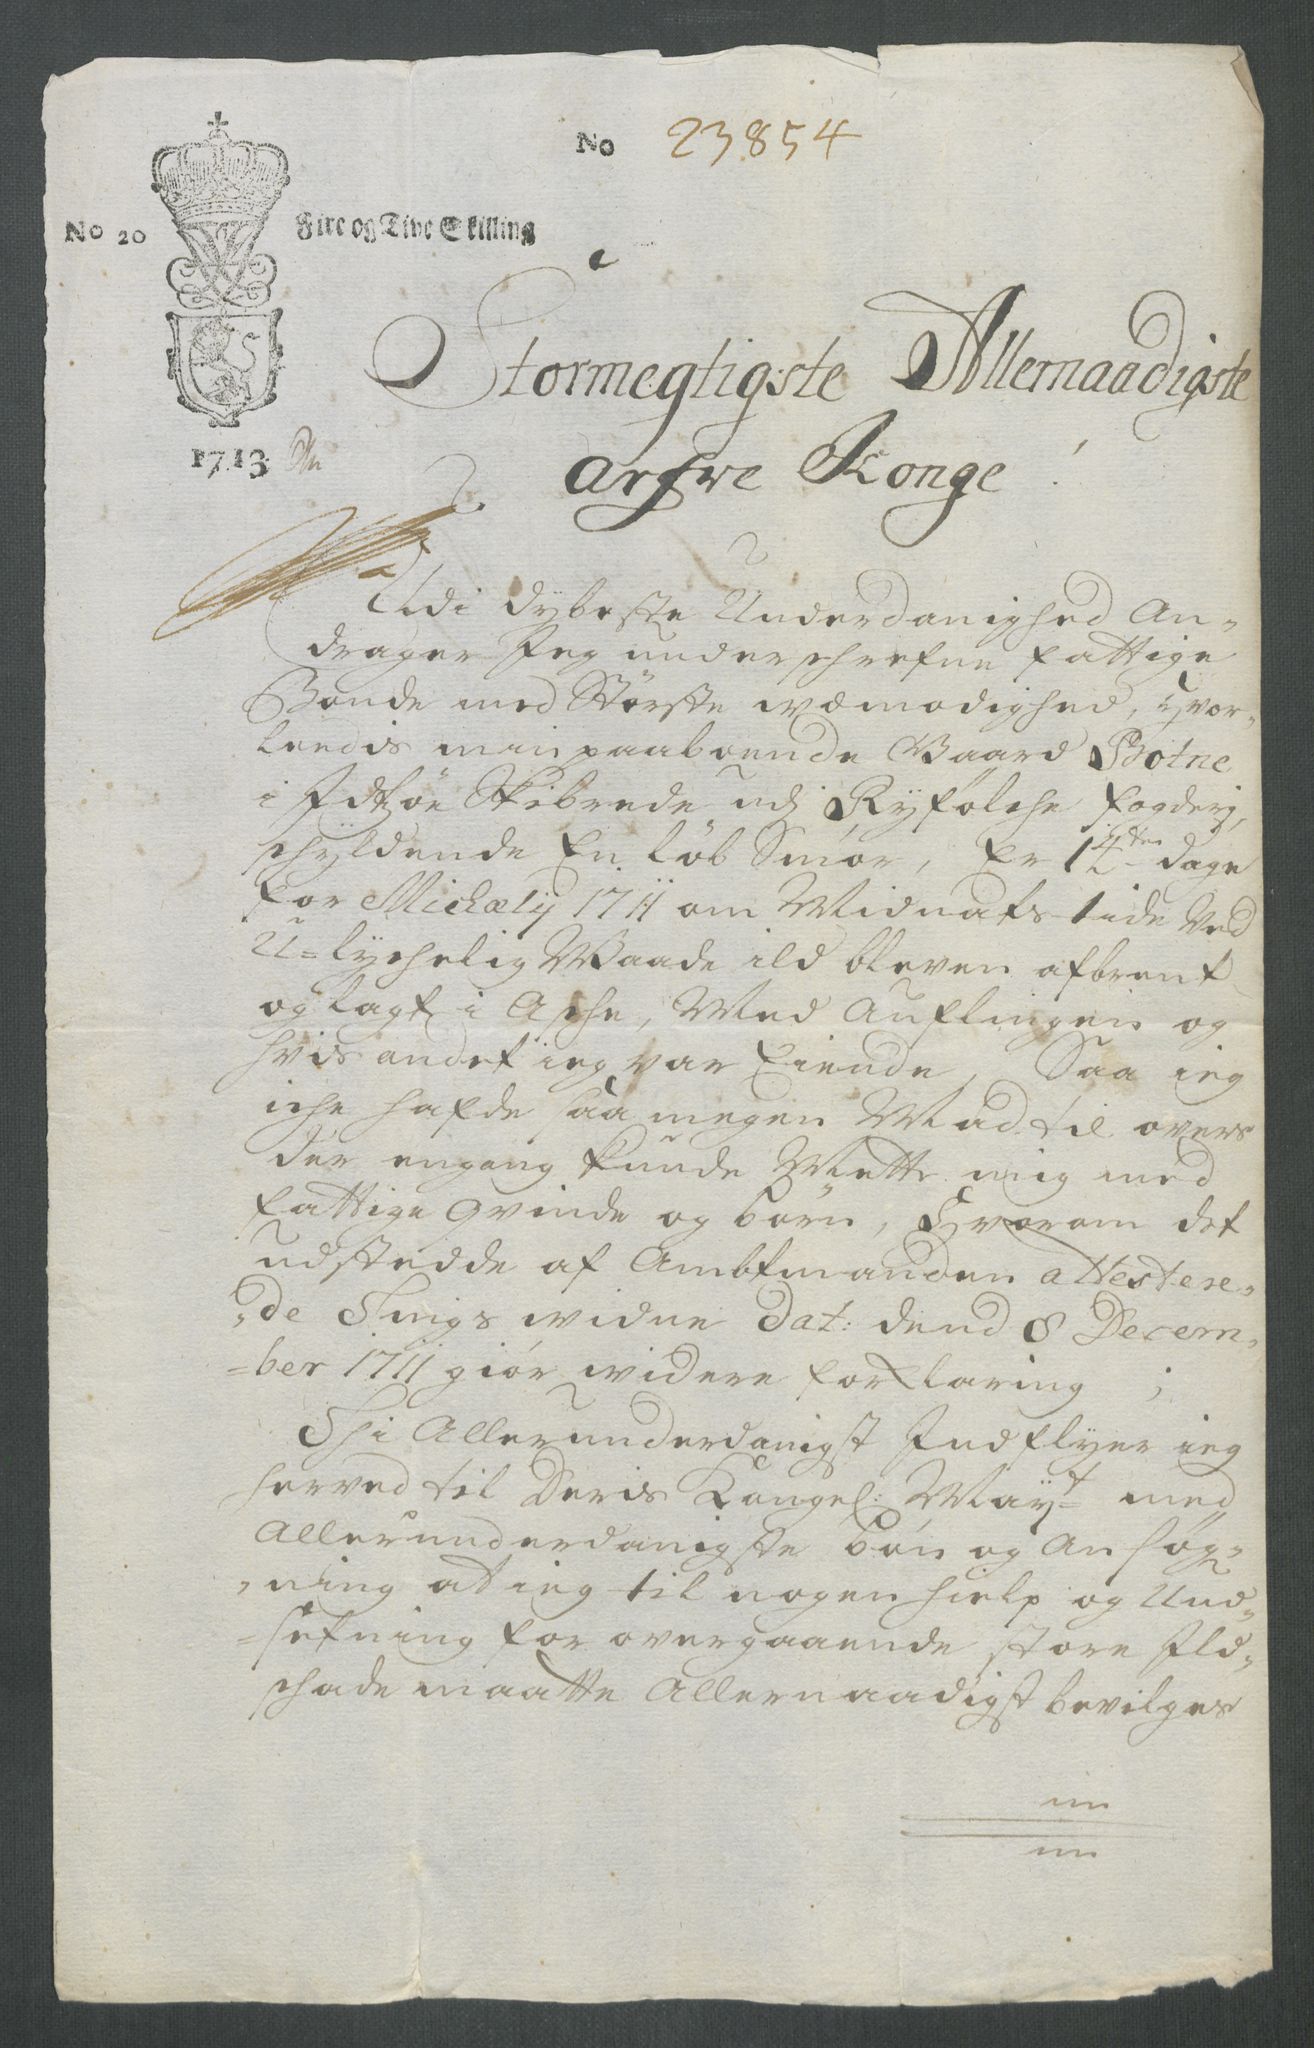 No 23854
No 20 Fire og Tive Skilling
1713
Stormegtigste Allernaadigste
arfve Konge!
Udi dybeste Underdanighed An-
drager Jeg underschrefne fattige
Bonde med Störste wemodighed, hvor-
leedis min paaboende Gaard Botne
i Jdtzöe Skibrede udj Ryfölche fogderj,
schyldende En löb Smör, Er 14ten dage
for Michælij 1711 om Midnats tide Ved
U=lychelig Waade ild bleven afbrent
og lagt i Asche, Med Auflingen og
hvis andet ieg var Eiende, Saa ieg
iche hafde saa megen Mad til overs
der engang kunde Mette mig med
fattige Qvinde og börn, Hvorom det
udstedde af Ambtmanden attestere-
de Tings widne Dat: dend 8 Decem-
-ber 1711 giör widere forklaring;
Thi Allerunderdanigst Indflyer ieg
herved til Deris Kongel: Mayt= med
Allerunderdanigste bön og Ansög-
-ning at ieg til nogen hielp og Und-
-setning for overgaaende store Ild-
schade maatte Allernaadigst bevilges